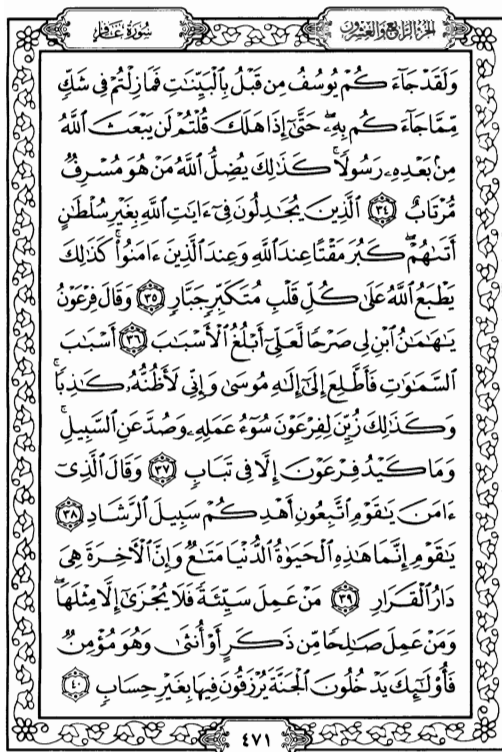 الجزء الرابع والعشرون
سورة غافر
وَلَقَدْ جَآءَكُمْ يُوسُفُ مِن قَبْلُ بِالْبَيِّنَٰتِ فَمَا زِلْتُمْ فِي شَكٍّ
مِّمَّا جَآءَكُم بِهِۦۖ حَتَّىٰٓ إِذَا هَلَكَ قُلْتُمْ لَن يَبْعَثَ اللَّهُ
مِنۢ بَعْدِهِۦ رَسُولًاۚ كَذَٰلِكَ يُضِلُّ اللَّهُ مَنْ هُوَ مُسْرِفٌ
مُّرْتَابٌ ٣٤ الَّذِينَ يُجَٰدِلُونَ فِيٓ ءَايَٰتِ اللَّهِ بِغَيْرِ سُلْطَٰنٍ
أَتَىٰهُمْۖ كَبُرَ مَقْتًا عِندَ اللَّهِ وَعِندَ الَّذِينَ ءَامَنُواْۚ كَذَٰلِكَ
يَطْبَعُ اللَّهُ عَلَىٰ كُلِّ قَلْبِ مُتَكَبِّرٍ جَبَّارٍ ٣٥ وَقَالَ فِرْعَوْنُ
يَٰهَٰمَٰنُ ابْنِ لِي صَرْحًا لَّعَلِّيٓ أَبْلُغُ الْأَسْبَٰبَ ٣٦ أَسْبَٰبَ
السَّمَٰوَٰتِ فَأَطَّلِعَ إِلَىٰٓ إِلَٰهِ مُوسَىٰ وَإِنِّي لَأَظُنُّهُۥ كَٰذِبًاۚ
وَكَذَٰلِكَ زُيِّنَ لِفِرْعَوْنَ سُوٓءُ عَمَلِهِۦ وَصُدَّ عَنِ السَّبِيلِۚ
وَمَا كَيْدُ فِرْعَوْنَ إِلَّا فِي تَبَابٍ ٣٧ وَقَالَ الَّذِيٓ
ءَامَنَ يَٰقَوْمِ اتَّبِعُونِ أَهْدِكُمْ سَبِيلَ الرَّشَادِ ٣٨
يَٰقَوْمِ إِنَّمَا هَٰذِهِ الْحَيَوٰةُ الدُّنْيَا مَتَٰعٌ وَإِنَّ الْأٓخِرَةَ هِيَ
دَارُ الْقَرَارِ ٣٩ مَنْ عَمِلَ سَيِّئَةً فَلَا يُجْزَىٰٓ إِلَّا مِثْلَهَاۖ
وَمَنْ عَمِلَ صَٰلِحًا مِّن ذَكَرٍ أَوْ أُنثَىٰ وَهُوَ مُؤْمِنٌ
فَأُوْلَٰٓئِكَ يَدْخُلُونَ الْجَنَّةَ يُرْزَقُونَ فِيهَا بِغَيْرِ حِسَابٍ ٤٠
٤٧١